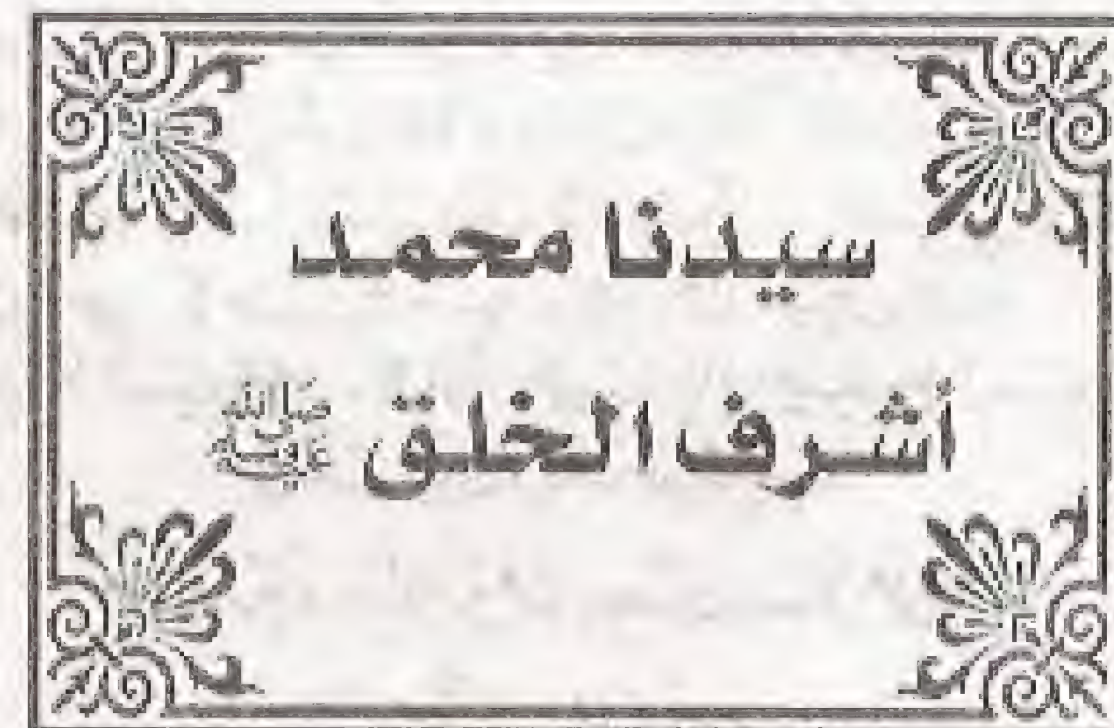 سيدنا محمد
أشرف الخلق ﷺ